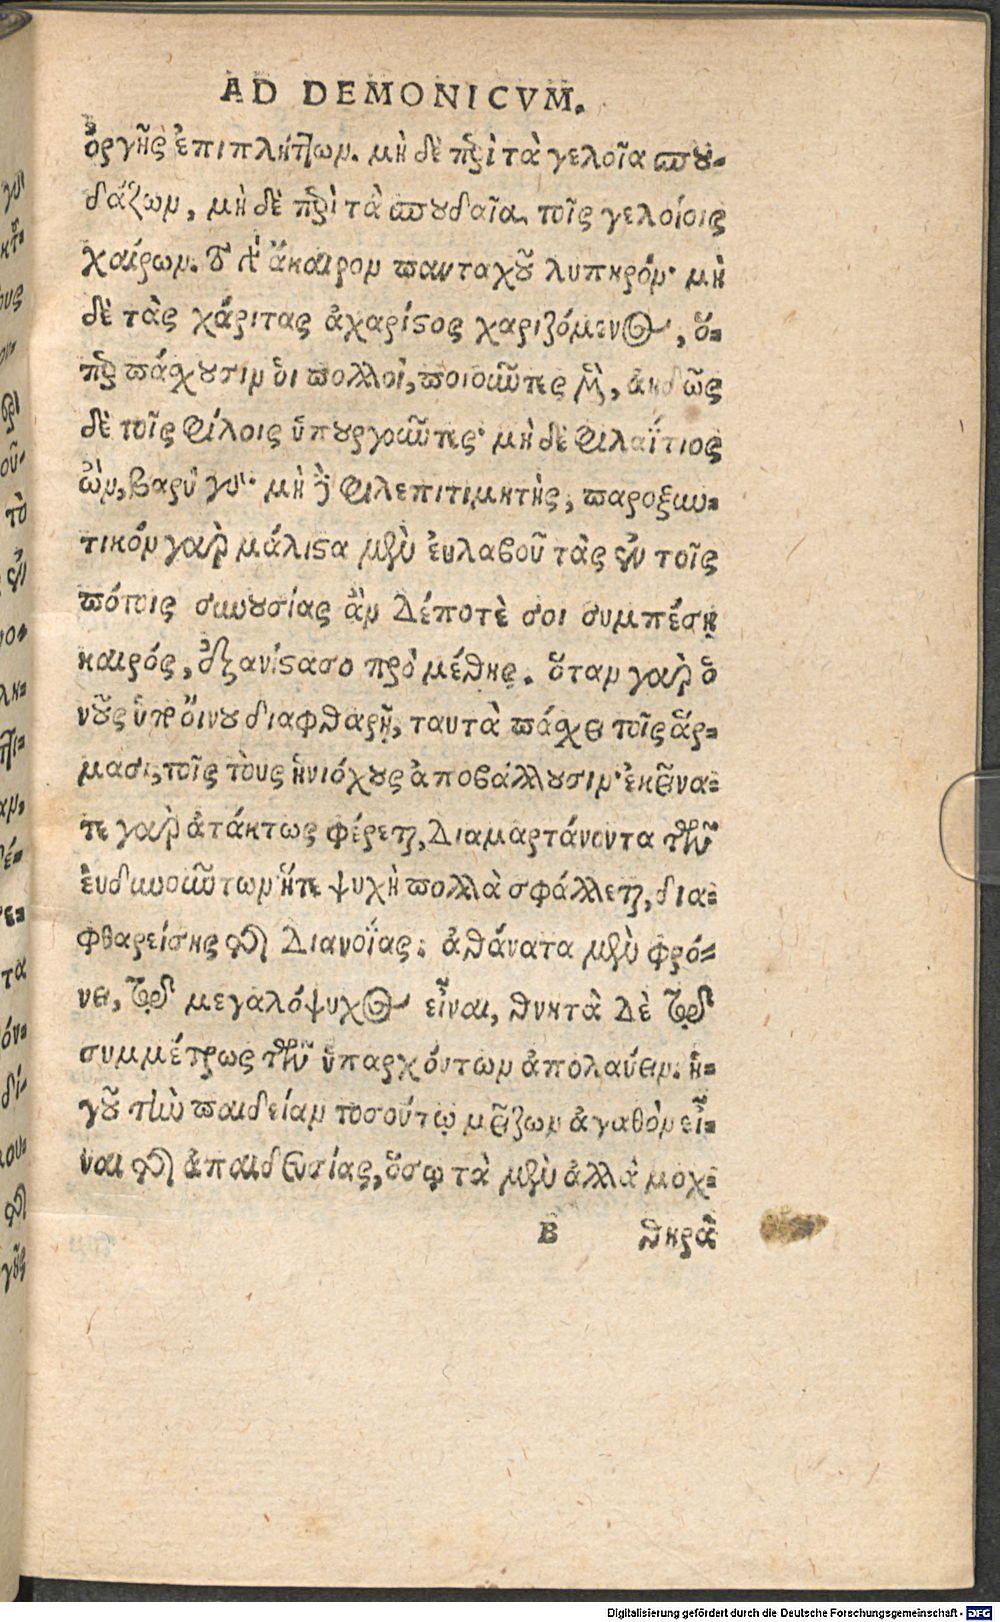 AD DEMONICVM.
ὀργῆς ἐπιπλήττων. μὴ δὲ περὶ τὰ γελοῖα σπου-
δάζων, μὴ δὲ περὶ τὰ σπουδαῖα τοῖς γελοίοις
χαίρων. τὸ γὰρ ἄκαιρον πανταχοῦ λυπηρόν· μὴ
δὲ τὰς χάριτας ἀχαρίστως χαριζόμενος, ὅ-
περ πάσχουσιν ὁι πολλοὶ, ποιοῦντες μὲν, ἀηδῶς
δὲ τοῖς φίλοις ὑπουργοῦντες· μὴ δὲ φιλαίτιος
ὢν, βαρὺ γὰρ· μὴ δὲ φιλεπιτιμητὴς, παροξυν-
τικὸν γαρ μάλιστα μὲν ἐυλαβοῦ τὰς ἐν τοῖς
πότοις συνουσίας ἂν δέποτὲ σοι συμπέσῃ
καιρός, ἐξανίστασο πρὸ μέθης. ὅταν γαρ ὁ
νοῦς ὑπὸ ὄινου διαφθαρῇ, ταυτὰ πάσχει τοῖς ἅρ-
μασι, τοῖς τοὺς ἡνιόχους ἀποβάλλουσιν· ἐκεῖνα-
τε γαρ ἀτάκτως φέρεται, διαμαρτάνοντα τῶν
ἐυθυνούντων ἥτε ψυχὴ πολλὰ σφάλλεται, δια-
φθαρείσης τῆς διανοίας. ἀθάνατα μὲν φρό-
νει, τῷ μεγαλόψυχος εἶναι, θνητὰ δὲ τῷ
συμμέτρως τῶν ὑπαρχόντων ἀπολαύειν. ἡ-
γοῦ τὴν παιδείαν τοσούτῳ μεῖζον ἀγαθὸν εἶ-
ναι τῆς ἀπαιδευσίας, ὅσῳ τὰ μὲν ἀλλὰ μοχ-
B θηρὰ
Digitalisierung gefördert durch die Deutsche Forschungsgemeinschaft - DFG